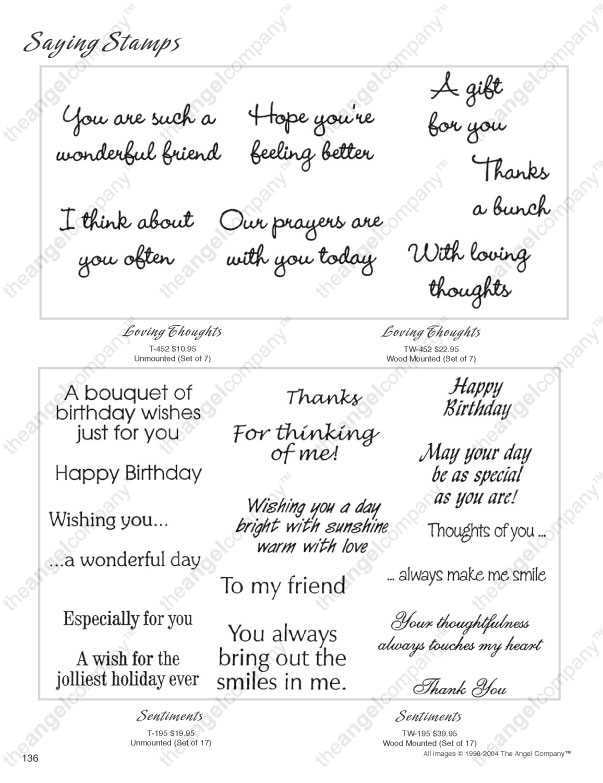 Saying Stamps
You are such a
wonderful friend
Hope you're
feeling better
A gift
for you
Thanks
a bunch
I think about
you often
Our prayers are
with you today
With loving
thoughts
Loving Thoughts
T-452 $10.95
Unmounted (Set of 7)
Loving Thoughts
TW-452 $22.95
Wood Mounted (Set of 7)
A bouquet of
birthday wishes
just for you
Happy Birthday
Wishing you...
...a wonderful day
Especially for you
A wish for the
jolliest holiday ever
Thanks
For thinking
of me!
Wishing you a day
bright with sunshine
warm with love
To my friend
You always
bring out the
smiles in me.
Happy
Birthday
May your day
be as special
as you are!
Thoughts of you ...
... always make me smile
Your thoughtfulness
always touches my heart
Thank You
Sentiments
T-195 $19.95
Unmounted (Set of 17)
Sentiments
TW-195 $39.95
Wood Mounted (Set of 17)
All images © 1998-2004 The Angel Company™
136
theangelcompany™